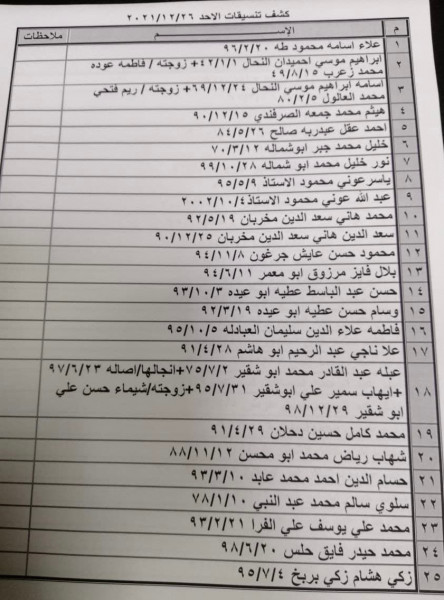 كشف تنسيقات الاحد ٢٠٢١/١٢/٢٦
م الإســـم ملاحظات
١ علاء اسامه محمود طه ٩٦/٢/٢٠
٢ ابراهيم موسي احميدان النحال ٤٢/١/١+ زوجته / فاطمه عوده
محمد زعرب ٤٩/٨/١٥
٣ اسامه ابراهيم موسي النحال ٦٩/١٢/٢٤+ زوجته / ريم فتحي
محمد العالول ٨٠/٢/٥
٤ هيثم محمد جمعه الصرفندي ٩٠/١٢/١٥
٥ احمد عقل عبدربه صالح ٨٤/٥/٢٦
٦ خليل محمد جبر ابوشماله ٧٠/٣/١٢
٧ نور خليل محمد ابو شماله ٩٩/١٠/٢٨
٨ ياسرعوني محمود الاستاذ ٩٥/٥/٩
٩ عبد الله عوني محمود الاستاذ٢٠٠٢/١٠/٤
١٠ محمد هاني سعد الدين مخربان ٩٢/٥/١٩
١١ سعد الدين هاني سعد الدين مخربان ٩٠/١٢/٢٥
١٢ محمود حسن عايش جرغون ٩٤/١١/٨
١٣ بلال فايز مرزوق ابو معمر ٩٤/٦/١١
١٤ حسن عبد الباسط عطيه ابو عيده ٩٣/١٠/٣
١٥ وسام حسن عطيه ابو عيده ٩٢/٣/١٩
١٦ فاطمه علاء الدين سليمان العبادله ٩٥/١٠/٥
١٧ علا ناجي عبد الرحيم ابو هاشم ٩١/٤/٢٨
عبله عبد القادر محمد ابو شقير ٧٥/٧/٢+انجالها/اصاله ٩٧/٦/٢٣
١٨ +ايهاب سمير علي ابوشقير ٩٥/٧/٣١+زوجته/شيماء حسن علي
ابو شقير ٩٨/١٢/٢٩
١٩ محمد كامل حسين دحلان ٩١/٤/٢٩
٢٠ شهاب رياض محمد ابو محسن ٨٨/١١/١٢
٢١ حسام الدين احمد محمد عابد ٩٣/٣/١٠
٢٢ سلوي سالم محمد عبد النبي ٧٨/١/١٠
٢٣ محمد علي يوسف علي الفرا ٩٣/٢/٢١
٢٤ محمد حيدر فايق حلس ٩٨/٦/٢٠
٢٥ زكي هشام زكي بربخ ٩٥/٧/٤